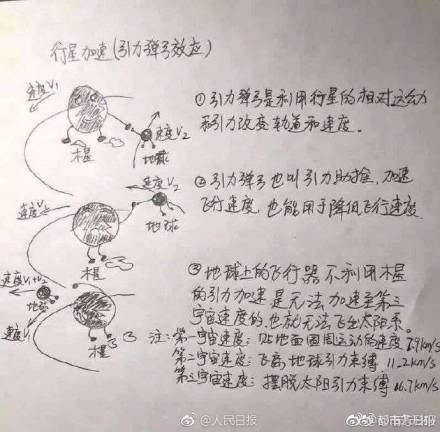 行星加速(引力弹弓效应)
速度V₁
木星
速度V₂
地球
①引力弹弓是利用行星的相对运动
和引力改变轨道和速度。
速度V₁
木星
速度V₂
地球
②引力弹弓也叫引力助推,加速
飞行速度,也能用于降低飞行速度
速度V₁+V₂
地球
速度V₁
木星
③地球上的飞行器不利用木星
的引力加速是无法加速至第三
宇宙速度的,也就无法飞出太阳系。
注:第一宇宙速度:贴地面圆周运动的速度 7.9km/s
第二宇宙速度:飞离地球引力束缚 11.2km/s
第三宇宙速度:摆脱太阳引力束缚 16.7km/s
@人民日报